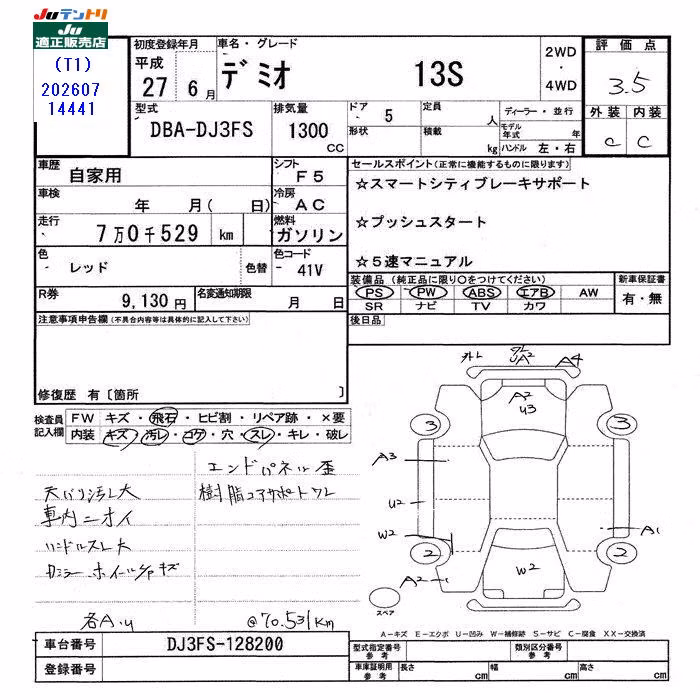 Juテントリ
Ju
適正販売店
(T1)
202607
14441
初度登録年月
平成
27 年 6 月
車名・グレード
デミオ 13S
2WD
・
4WD
評価点
3.5
外装 内装
C C
型式
DBA-DJ3FS
排気量
1300 CC
ドア 5
形状
定員 人
積載 kg
ディーラー・並行
モデル年式 年
ハンドル 左・右
車歴 自家用
シフト F5
車検 年 月( 日)
冷房 AC
走行 7万0千529 km
燃料 ガソリン
色 レッド 色替
色コード - 41V
R券 9,130円
名変通知期限 月 日
セールスポイント(正常に機能するものに限ります)
☆スマートシティブレーキサポート
☆プッシュスタート
☆5速マニュアル
装備品(純正品に限り○をつけてください)
PS PW ABS エアB AW
SR ナビ TV カワ
新車保証書
有・無
後日品
注意事項申告欄(不具合内容等は具体的に記入して下さい)
修復歴 有〔箇所 〕
検査員記入欄
FW キズ・飛石・ヒビ割・リペア跡・×要
内装 キズ・汚レ・コゲ・穴・スレ・キレ・破レ
エンドパネル歪
天バリ汚レ大 樹脂コアサポートワレ
車内ニオイ
ハンドルスレ大
カミラーホイールキャップキズ
各A.U @70.531km
外レ ワレ A2 A4
A2
U3
3 3
A3
U2
W2 A1
2 2
A2 W2
スペア
A-キズ E-エクボ U-凹み W-補修跡 S-サビ C-腐食 XX-交換済
車台番号 DJ3FS-128200
登録番号
型式指定番号 参考
類別区分番号 参考
車庫証明用 参考
長さ cm 幅 cm 高さ cm